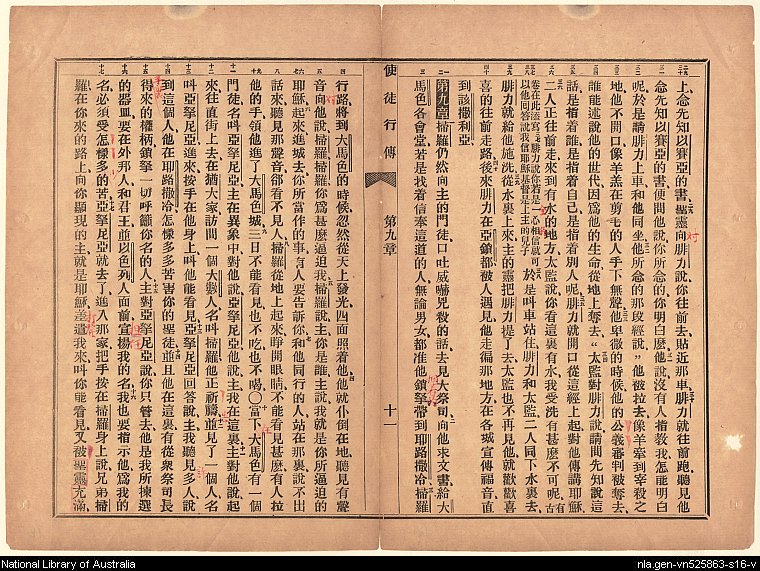 上念先知以賽亞的書聖靈向腓力說你往前去貼近那車腓力就往前跑聽見他
念先知以賽亞的書便問他說你所念的你明白麼他說沒有人指教我怎能明白
呢於是請腓力上車和他同坐他所念的那段經說他被拉去像羊牽到宰殺之
地他不開口像羊羔在剪毛的人手下無聲他卑微的時候他的公義審判被奪去
誰能述說他的世代因爲他的生命從地上奪去太監對腓力說請問先知說這
話是指着誰是指着自己是指着別人呢腓力就開口從這經上起對他傳講耶穌
二人正往前走來到有水的地方太監說你看這裏有水我受洗有甚麽不可呢
古卷在此添寫腓力說你若是一心相信就可以他回答說我信耶穌基督是上主的兒子
於是叫車站住腓力和太監二人同下水裏去
腓力就給他施洗從水裏上來主的靈把腓力提了去太監也不再見他就歡歡喜
喜的往前走路後來腓力在亞鎖都被人遇見他走徧那地方在各城宣傳福音直
到該撒利亞
第九章掃羅仍然向主的門徒口吐威嚇兇殺的話去見大祭司向他求文書給大
馬色各會堂若是找着信奉這道的人無論男女都准他鎖拏帶到耶路撒冷掃羅
使徒行傳
第九章
十一
行路將到大馬色的時候忽然從天上發光四面照着他他就仆倒在地聽見有聲
音向他說掃羅掃羅你爲甚麽逼迫我掃羅說主你是誰主說我就是你所逼迫的
耶穌起來進城去你所當作的事有人要告訴你和他同行的人站在那裏說不出
話來聽見那聲音卻看不見人掃羅從地上起來睜開眼睛不能看見甚麽有人拉
他的手領他進了大馬色城三日不能看見也不吃也不喝○當下大馬色有一個
門徒名叫亞拏尼亞主在異象中對他說亞拏尼亞他說主我在這裏主對他說起
來往直街上去在猶大家訪問一個大數人名叫掃羅他正祈禱並見了一個人名
叫亞拏尼亞進來按手在他身上叫他能看見亞拏尼亞回答說主我聽見多人說
到這個人他在耶路撒冷怎樣多多苦害你的聖徒並且他在這裏有從衆祭司長
得來的權柄鎖拏一切呼籲你名的人主對亞拏尼亞說你只管去他是我所揀選
的器皿要在外邦人和君王並以色列人面前宣揚我的名我也要指示他爲我的
名必須受怎樣多的苦亞拏尼亞就去了進入那家把手按在掃羅身上說兄弟掃
羅在你來的路上向你顯現的主就是耶穌差遣我來叫你能看見又被聖靈充滿
National Library of Australia
nla.gen-vn525863-s16-v